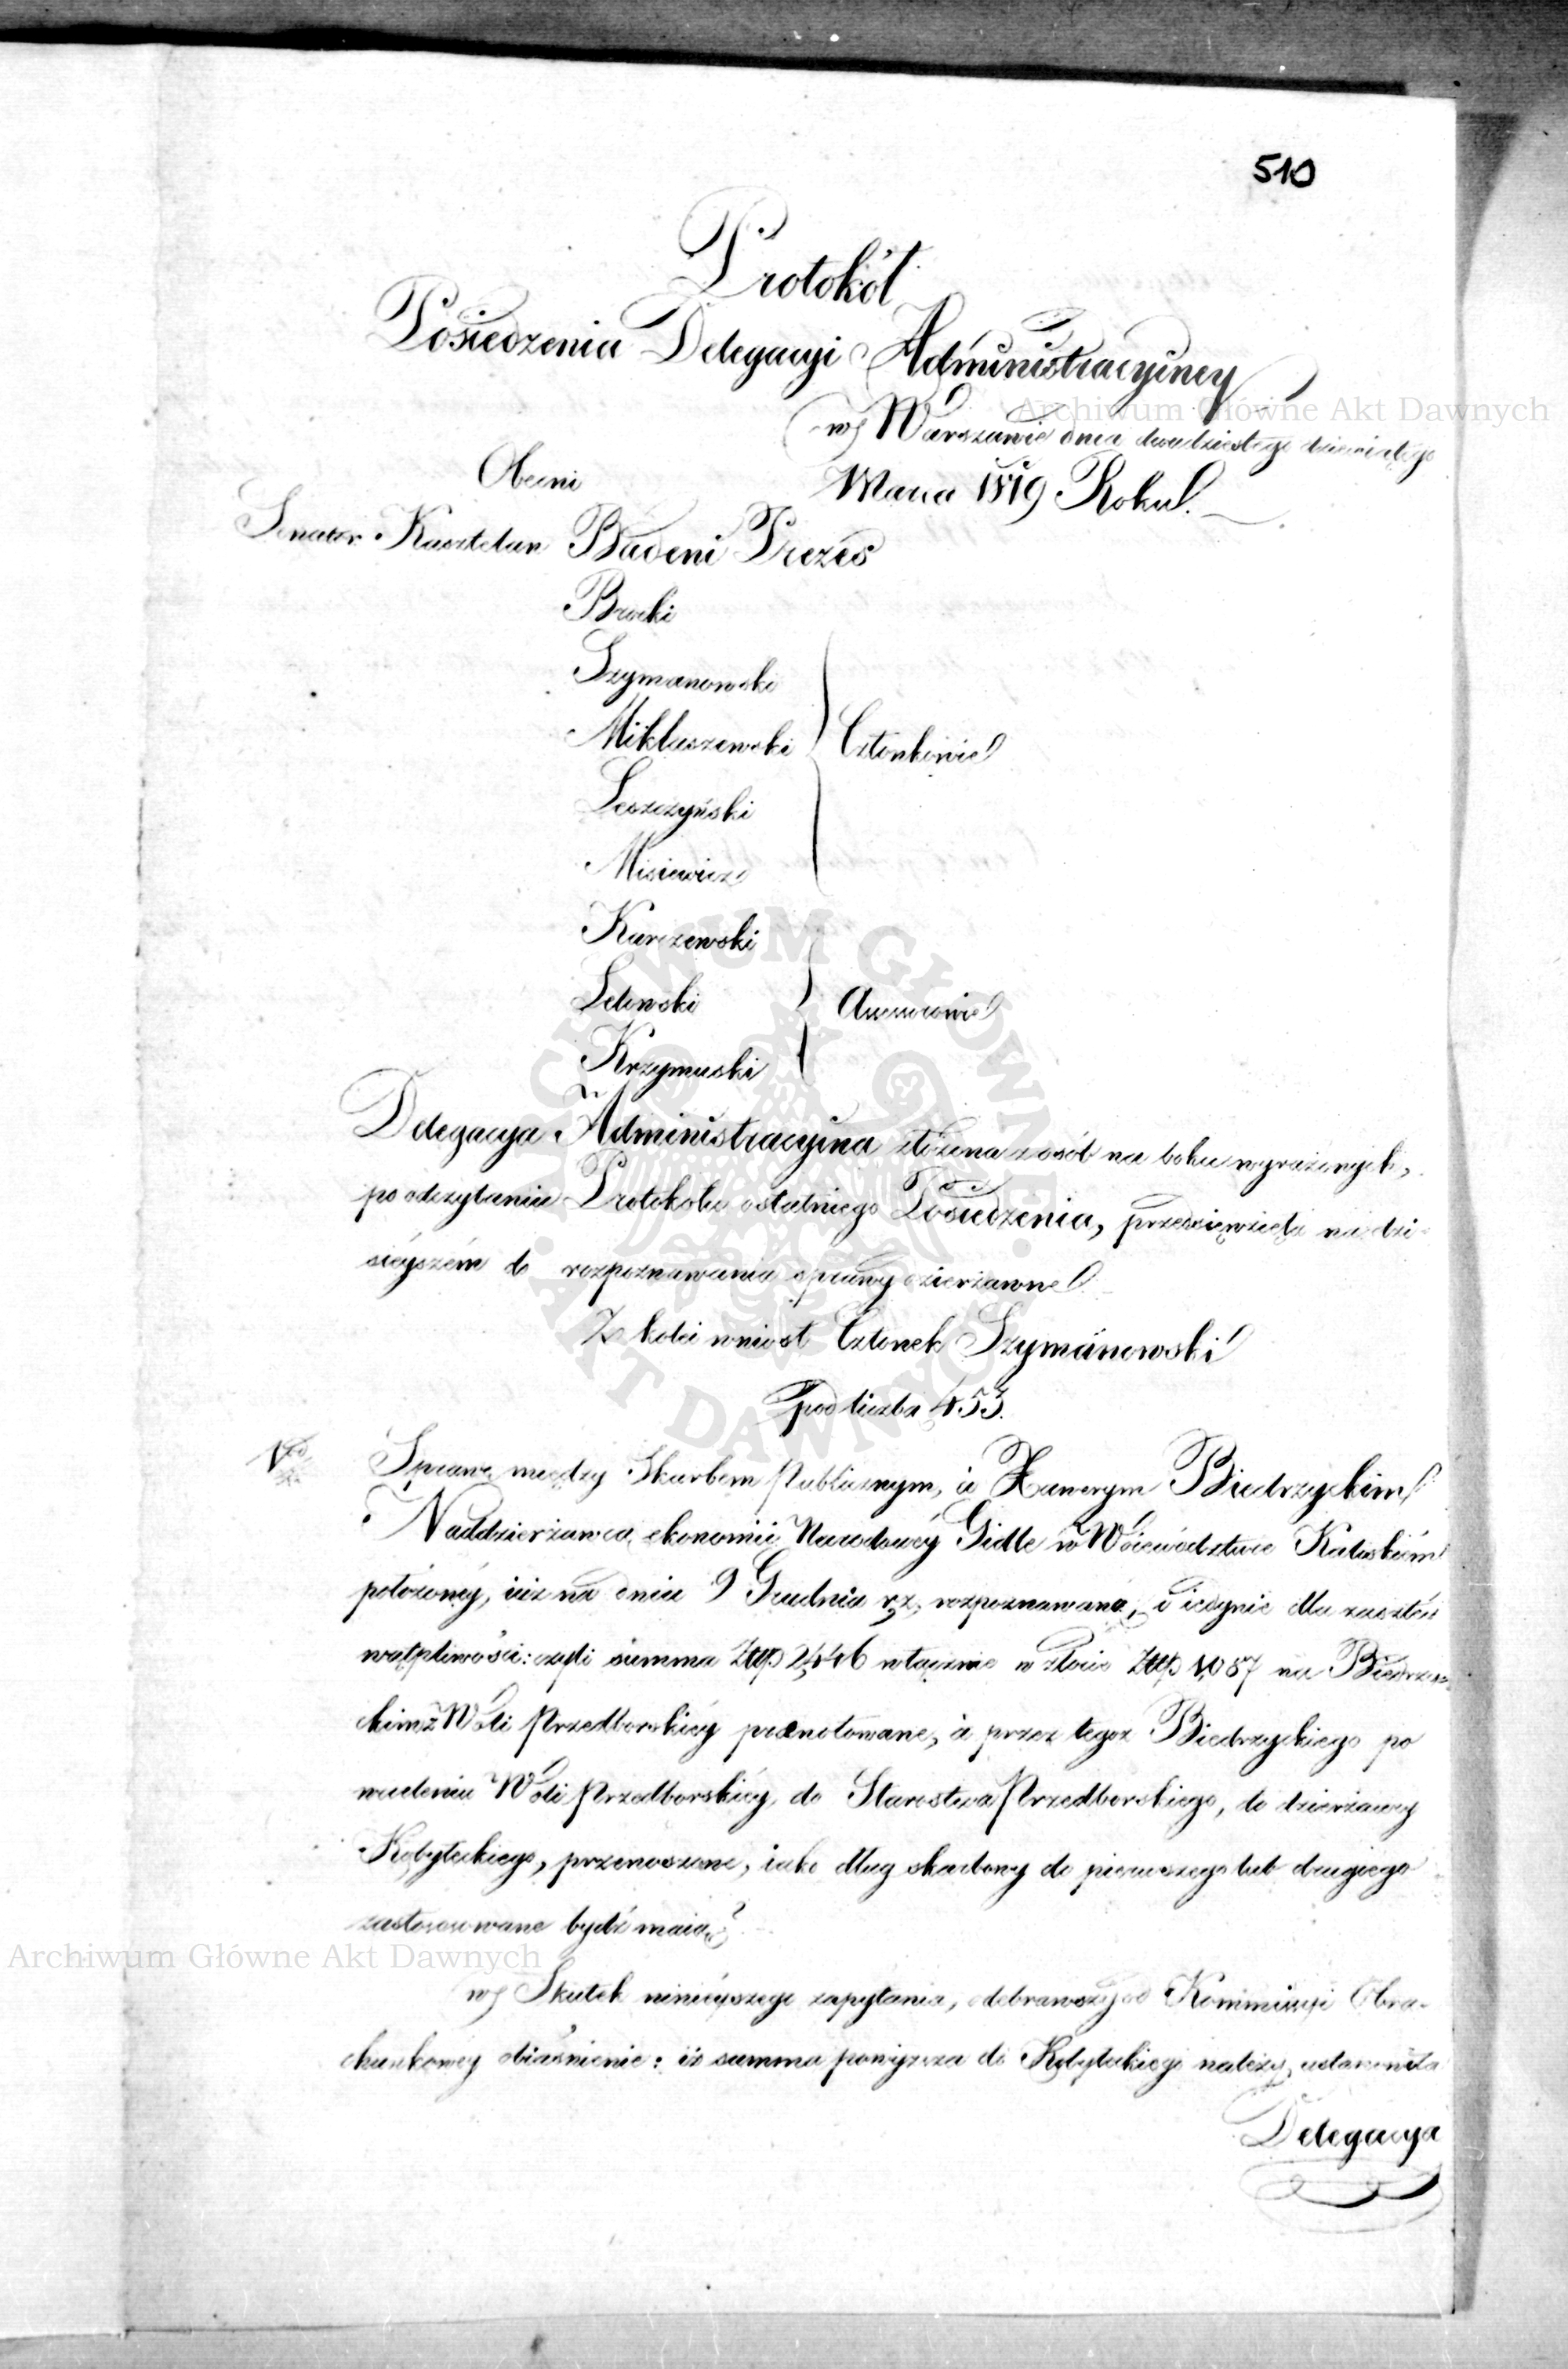 510
Protokół
Posiedzenia Delegacyi Administracyiney
w Warszawie dnia dwudziestego dziewiątego
Marca 1819 Roku.
Obecni
Senator Kasztelan Badeni Prezes
Brocki
Szymanowski
Miklaszewski Członkowie
Leszczyński
Misiewicz
Karczewski
Lelowski Assessorowie
Krzymuski
Delegacya Administracyina złożona z osób na boku wyrażonych,
po odczytaniu Protokołu ostatniego Posiedzenia, przedsięwzięła na dzi-
sieyszém do rozpoznawania sprawy dzierżawne
Z kolei wniosł Członek Szymanowski
pod liczbą 453.
1mo Sprawę między Skarbem Publicznym, a Xawerym Biedrzyckim
Naddzierżawcą ekonomii Narodowéy Gidle w Woiewództwie Kaliskiém
położonéy, iuż na dniu 9 Grudnia r. z. rozpoznawaną, i iedynie dla zaszłéy
wątpliwości: czyli summa Złtp 2,446 włącznie w złocie Złtp 1,087 na Biedrzy-
ckim z Woli Przedborskiéy prænotowane, a przez tegoż Biedrzyckiego po
wcieleniu Woli Przedborskiéy, do Starostwa Przedborskiego, do dzierżawcy
Kobyłeckiego, przenoszone, iako dług skarbowy do pierwszego lub drugiego
zastosowane bydź maią?
w Skutek ninieyszego zapytania, odebrawszy od Kommissyi Obra-
chunkowey obiaśnienie: iż summa powyższa do Kobyłeckiego należy, ustanowiła
Delegacya
Archiwum Główne Akt Dawnych
Archiwum Główne Akt Dawnych
ARCHIWUM GŁÓWNE AKT DAWNYCH